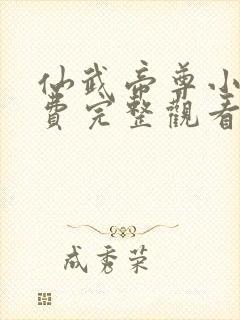 仙武帝尊小
費完整觀看
成秀荣